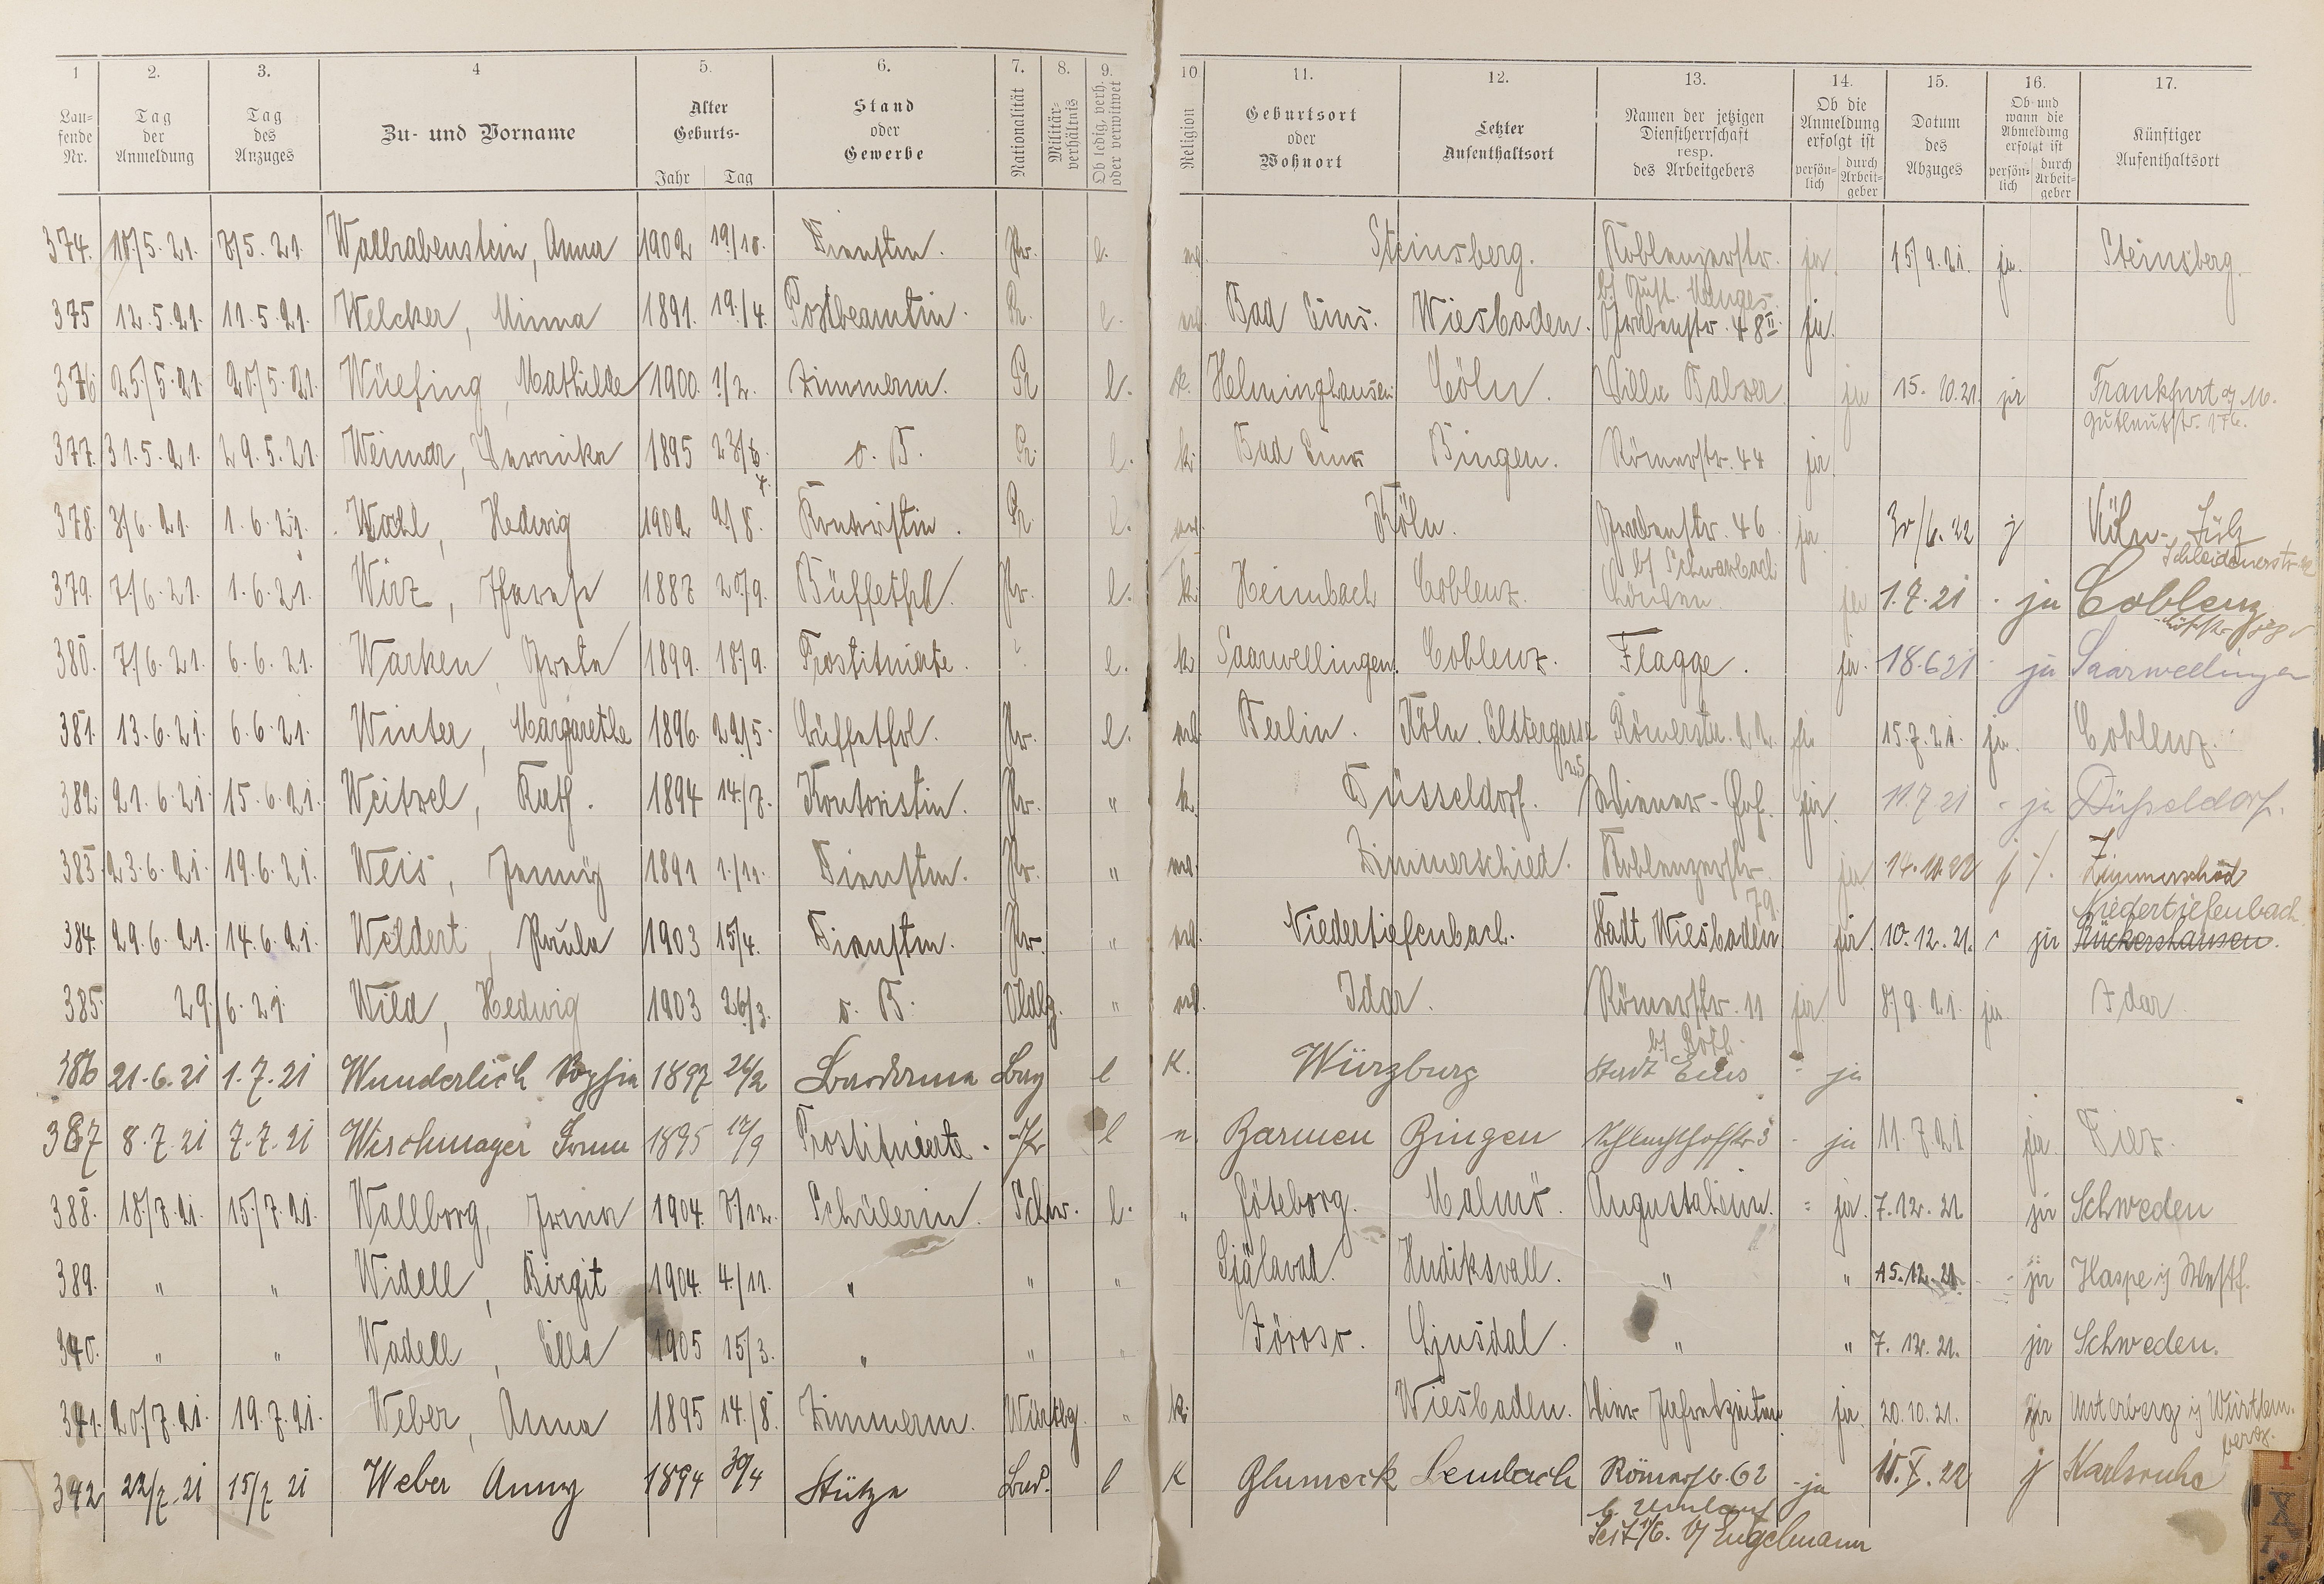 1 2. 3. 4 5. 6. 7. 8. 9. 10 11. 12. 13. 14. 15. 16. 17.
Lau-fende Nr. Tag der Anmeldung Tag des Anzuges Zu- und Vorname Alter Geburts- Jahr Tag Stand oder Gewerbe Nationalität Militär-verhältnis Ob ledig, verh. oder verwitwet Religion Geburtsort oder Wohnort Letzter Aufenthaltsort Namen der jetzigen Dienstherrschaft resp. des Arbeitgebers Ob die Anmeldung erfolgt ist persön-lich durch Arbeit-geber Datum des Abzuges Ob und wann die Abmeldung erfolgt ist persön-lich durch Arbeit-geber Künftiger Aufenthaltsort
374. 10/5. 21. 8/5. 21. Wallrabenstein, Anna 1902 19/10. Dienstm. Pr. l. ev. Steinsberg. Koblenzerstr. ja 15/9. 21. ja. Steinsberg.
375 12. 5. 21. 11. 5. 21. Welcker, Minna 1891. 19./4. Postbeamtin. Pr. l. ev. Bad Ems. Wiesbaden. Grabenstr. 48 II ja.
376 25/5. 21. 20/5. 21. Wüefing, Mathilde 1900. 1/2. Zimmerm. Pr l. k. Helminghausen Cöln. Villa Balzer ja 15. 10. 21. ja Frankfurt a/M.
Gutleutstr. 176.
377. 31. 5. 21. 29. 5. 21. Weimar, Veronika 1895 o. B. Pr. l. k. Bad Ems Bingen. Römerstr. 44 ja
378. 3/6. 21. 1. 6. 21. Wahl, Hedwig 1902 2/8. Kontoristin. Pr. l. ev. Köln. Grabenstr. 46 ja 30/6. 22 j Köln-Sülz
b/ Schwarbach Schleidenerstr.
379. 7/6. 21. 1. 6. 21. Wirz, Therese 1887 20/9. Büffetfrl. Pr. l. k. Heimbach Coblenz. ja 1. 7. 21 - ja Coblenz
380. 7/6. 21. 6. 6. 21. Warken, Greta 1899. 18/9. Prostituierte. " l. k Saarwellingen. Coblenz. Flagge. ja. 18.6 21 - ja Saarwellingen
381. 13. 6. 21. 6. 6. 21. Winter, Margarethe 1896. 22/5. Büffetfrl. Pr. l. ev. Berlin. Köln. Elstergasse Römerstr. 22. ja 15. 7. 21. ja. Coblenz.
382. 21. 6. 21. 15. 6. 21. Weitzel, Kath. 1894 14./7. Kontoristin. Pr. " k. Düsseldorf. Wiener-Hof. ja. 11.7 21 - ja Düsseldorf.
383. 23. 6. 21. 19. 6. 21. Weis, Jenny 1891 1./11. Dienstm. Pr. " ev. Zimmerschied. Koblenzerstr. 79. ja 14. 10. 22 j Zimmerschied
Niedertiefenbach
384. 29. 6. 21. 14. 6. 21. Weldert, Paula 1903 15/4. Dienstm. Pr. " ev. Niedertiefenbach. Stadt Wiesbaden ja. 10. 12. 21. ja Rückershausen.
385. 29/6. 21. Wild, Hedwig 1903 26/3. o. B. Oldbg. " ev. Idar. Römerstr. 11 ja 8/9. 21. ja. Idar
b/ Roth.
386 21. 6. 21 1. 7. 21 Wunderlich Sophia 1897 26/2 Bay l K. Würzburg Stadt Ems - ja
387 8. 7. 21 7. 7. 21 Wischmayer Irma 1895 12/9 Prostituierte. Pr l e. Barmen Bingen Schlachthofstr. 3 - ja 11. 7. 21 ja. Diez.
388. 18/7. 21. 15/7. 21. Wallborg, Irma 1904. 8/12. Schülerin. Schw. l. " Göteborg. Malmö. Augustaheim. - ja. 7. 12. 21. ja Schweden
389. " " Widell, Birgit 1904. 4./11. " " " Själavad. Hudiksvall. " " 15. 12. 21. - ja Haspe i/ Westf.
340. " " Wadell, Ella 1905 15/3. " " " Ljusdal. " " 7. 12. 21. ja Schweden.
341. 20/7. 21. 19. 7. 21. Weber, Anna 1895 14./8. Zimmerm. Württbg. " k. Wiesbaden. ja. 20. 10. 21. ja Unterberg i/ Württem-berg.
342 22/7. 21 15/7 21 Weber Anny 1894 30/4 Stütze Bad. l K Glumeck Lembach Römerstr. 62 - ja 10. X. 22 j Karlsruhe
b. Umlauf
Seit 1/6. b/ Engelmann